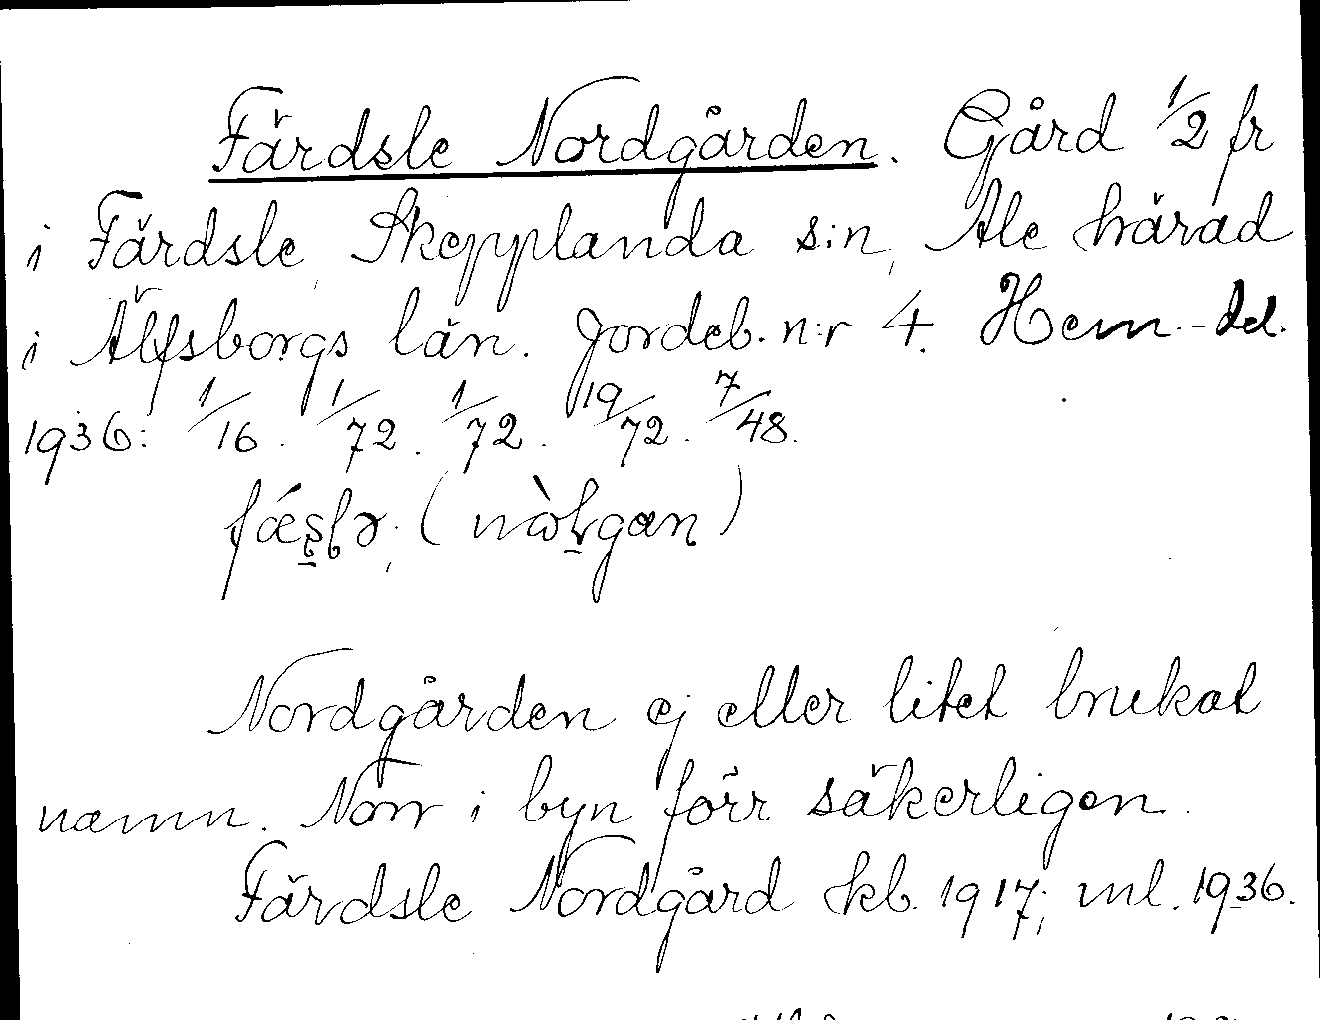 Färdsle Nordgården. Gård 1/2 fr
i Färdsle, Skepplanda s:n, Ale härad
i Älfsborgs län. Jordeb. n:r 4. Hem.-del.
1936: 1/16. 1/72. 1/72. 19/72. 7/48.
(nȧ̀ɽgan)
Nordgården ej eller litet brukat
namn. Norr i byn förr säkerligen.
Färdsle Nordgård kb. 1917; ml. 1936.